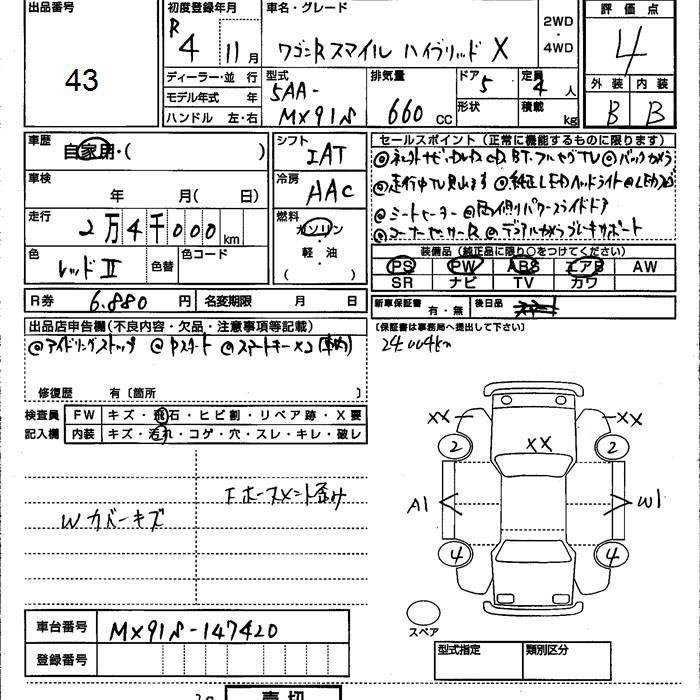 出品番号
43
初度登録年月
R 4 11月
車名・グレード
ワゴンR スマイル ハイブリッド X
2WD
・
4WD
評価点
4
外装 内装
B B
ディーラー・並 行
モデル年式 年
ハンドル 左・右
型式
5AA-
MX91S
排気量
660 cc
ドア
5
形状
定員
4 人
積載
kg
車歴
自家用・( )
車検
年 月( 日)
走行
2万4千000km
色
レッドⅡ
色替
色コード
シフト
IAT
冷房
AAC
燃料
ガソリン
・
軽・油
( )
R券 6.880 円 名変期限 月 日
セールスポイント(正常に機能するものに限ります)
◎ネット ナビ・DVD CD BT・フルセグTV ◎バックカメラ
◎走行中TV見れます ◎純正LEDヘッドライト
◎シートヒーター ◎両側パワースライドドア
◎コーナーセンサーR ◎デュアルカメラブレーキサポート
装備品(純正品に限り○をつけてください)
PS PW ABS エアB AW
SR ナビ TV カワ
新車保証書 有・無 後日品
(保証書は事務局へ提出して下さい)
24004km
出品店申告欄(不良内容・欠品・注意事項等記載)
◎アイドリングストップ ◎Pスタート ◎スマートキー×2(車内)
修復歴 有〔箇所 〕
検査員
記入欄
FW キズ・飛石・ヒビ割・リペア跡・X要
内装 キズ・汚れ・コゲ・穴・スレ・キレ・破レ
Fホースメント歪み
Wカバーキズ
XX XX
XX
2 2
A1 W1
4 4
スペア
車台番号 MX91S-147420
登録番号
型式指定 類別区分
売切